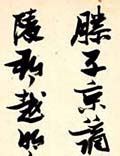 滕子京謫
陵郡越明